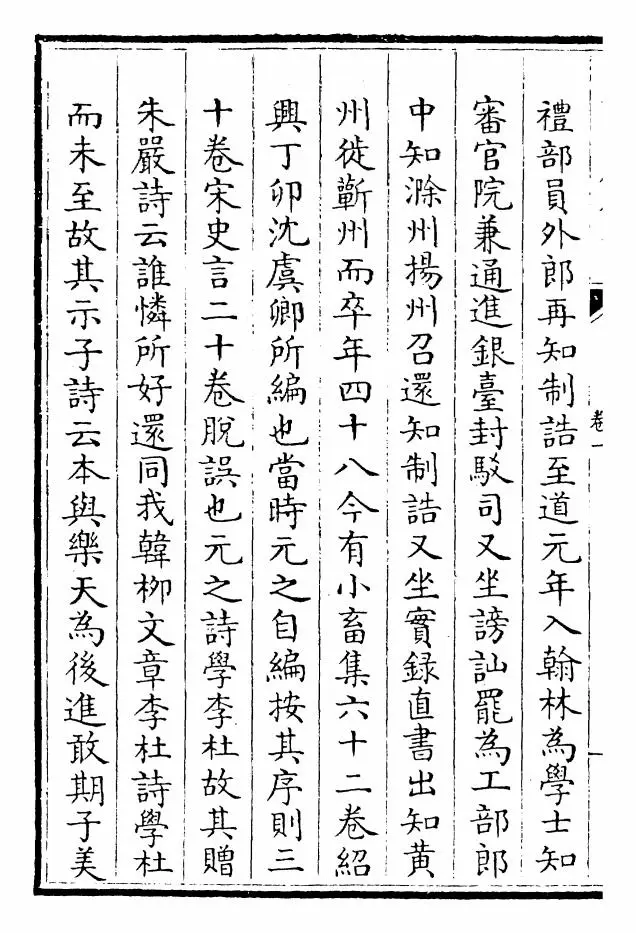 禮部員外郎再知制誥至道元年入翰林為學士知
審官院兼通進銀臺封駁司又坐謗訕罷為工部郎
中知滁州揚州召還知制誥又坐實録直書出知黃
州徙蘄州而卒年四十八今有小畜集六十二卷紹
興丁卯沈虞卿所編也當時元之自編按其序則三
十卷宋史言二十卷脫誤也元之詩學李杜故其贈
朱嚴詩云誰憐所好還同我韓柳文章李杜詩學杜
而未至故其示子詩云本與樂天為後進敢期子美
卷一